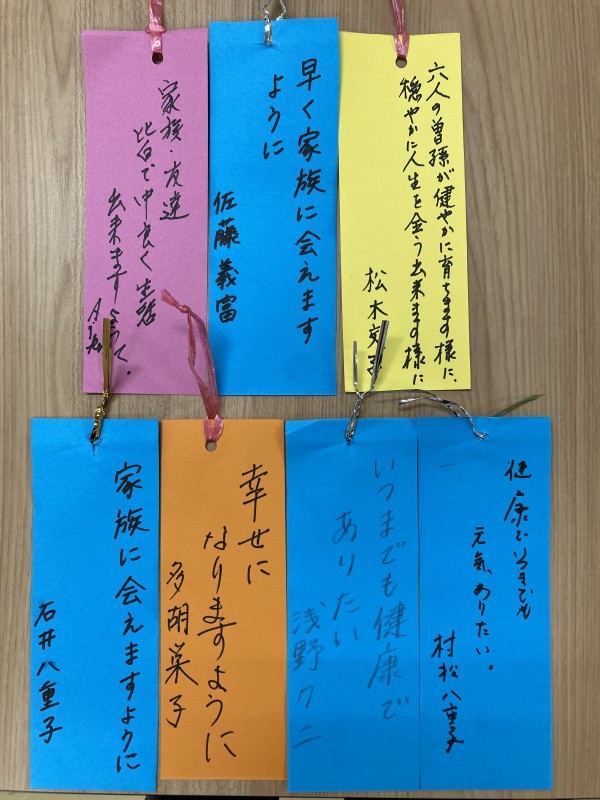 六人の曽孫が健やかに育ちます様に。
穏やかに人生を全う出来ます様に
松木
早く家族に会えます
ように
佐藤義富
家族・友達
皆で仲良く生活
出来ますように。
健康でいつまでも
元気でありたい。
村松八重子
いつまでも健康で
ありたい
浅野クニ
幸せに
なりますように
多胡栄子
家族に会えますように
石井八重子